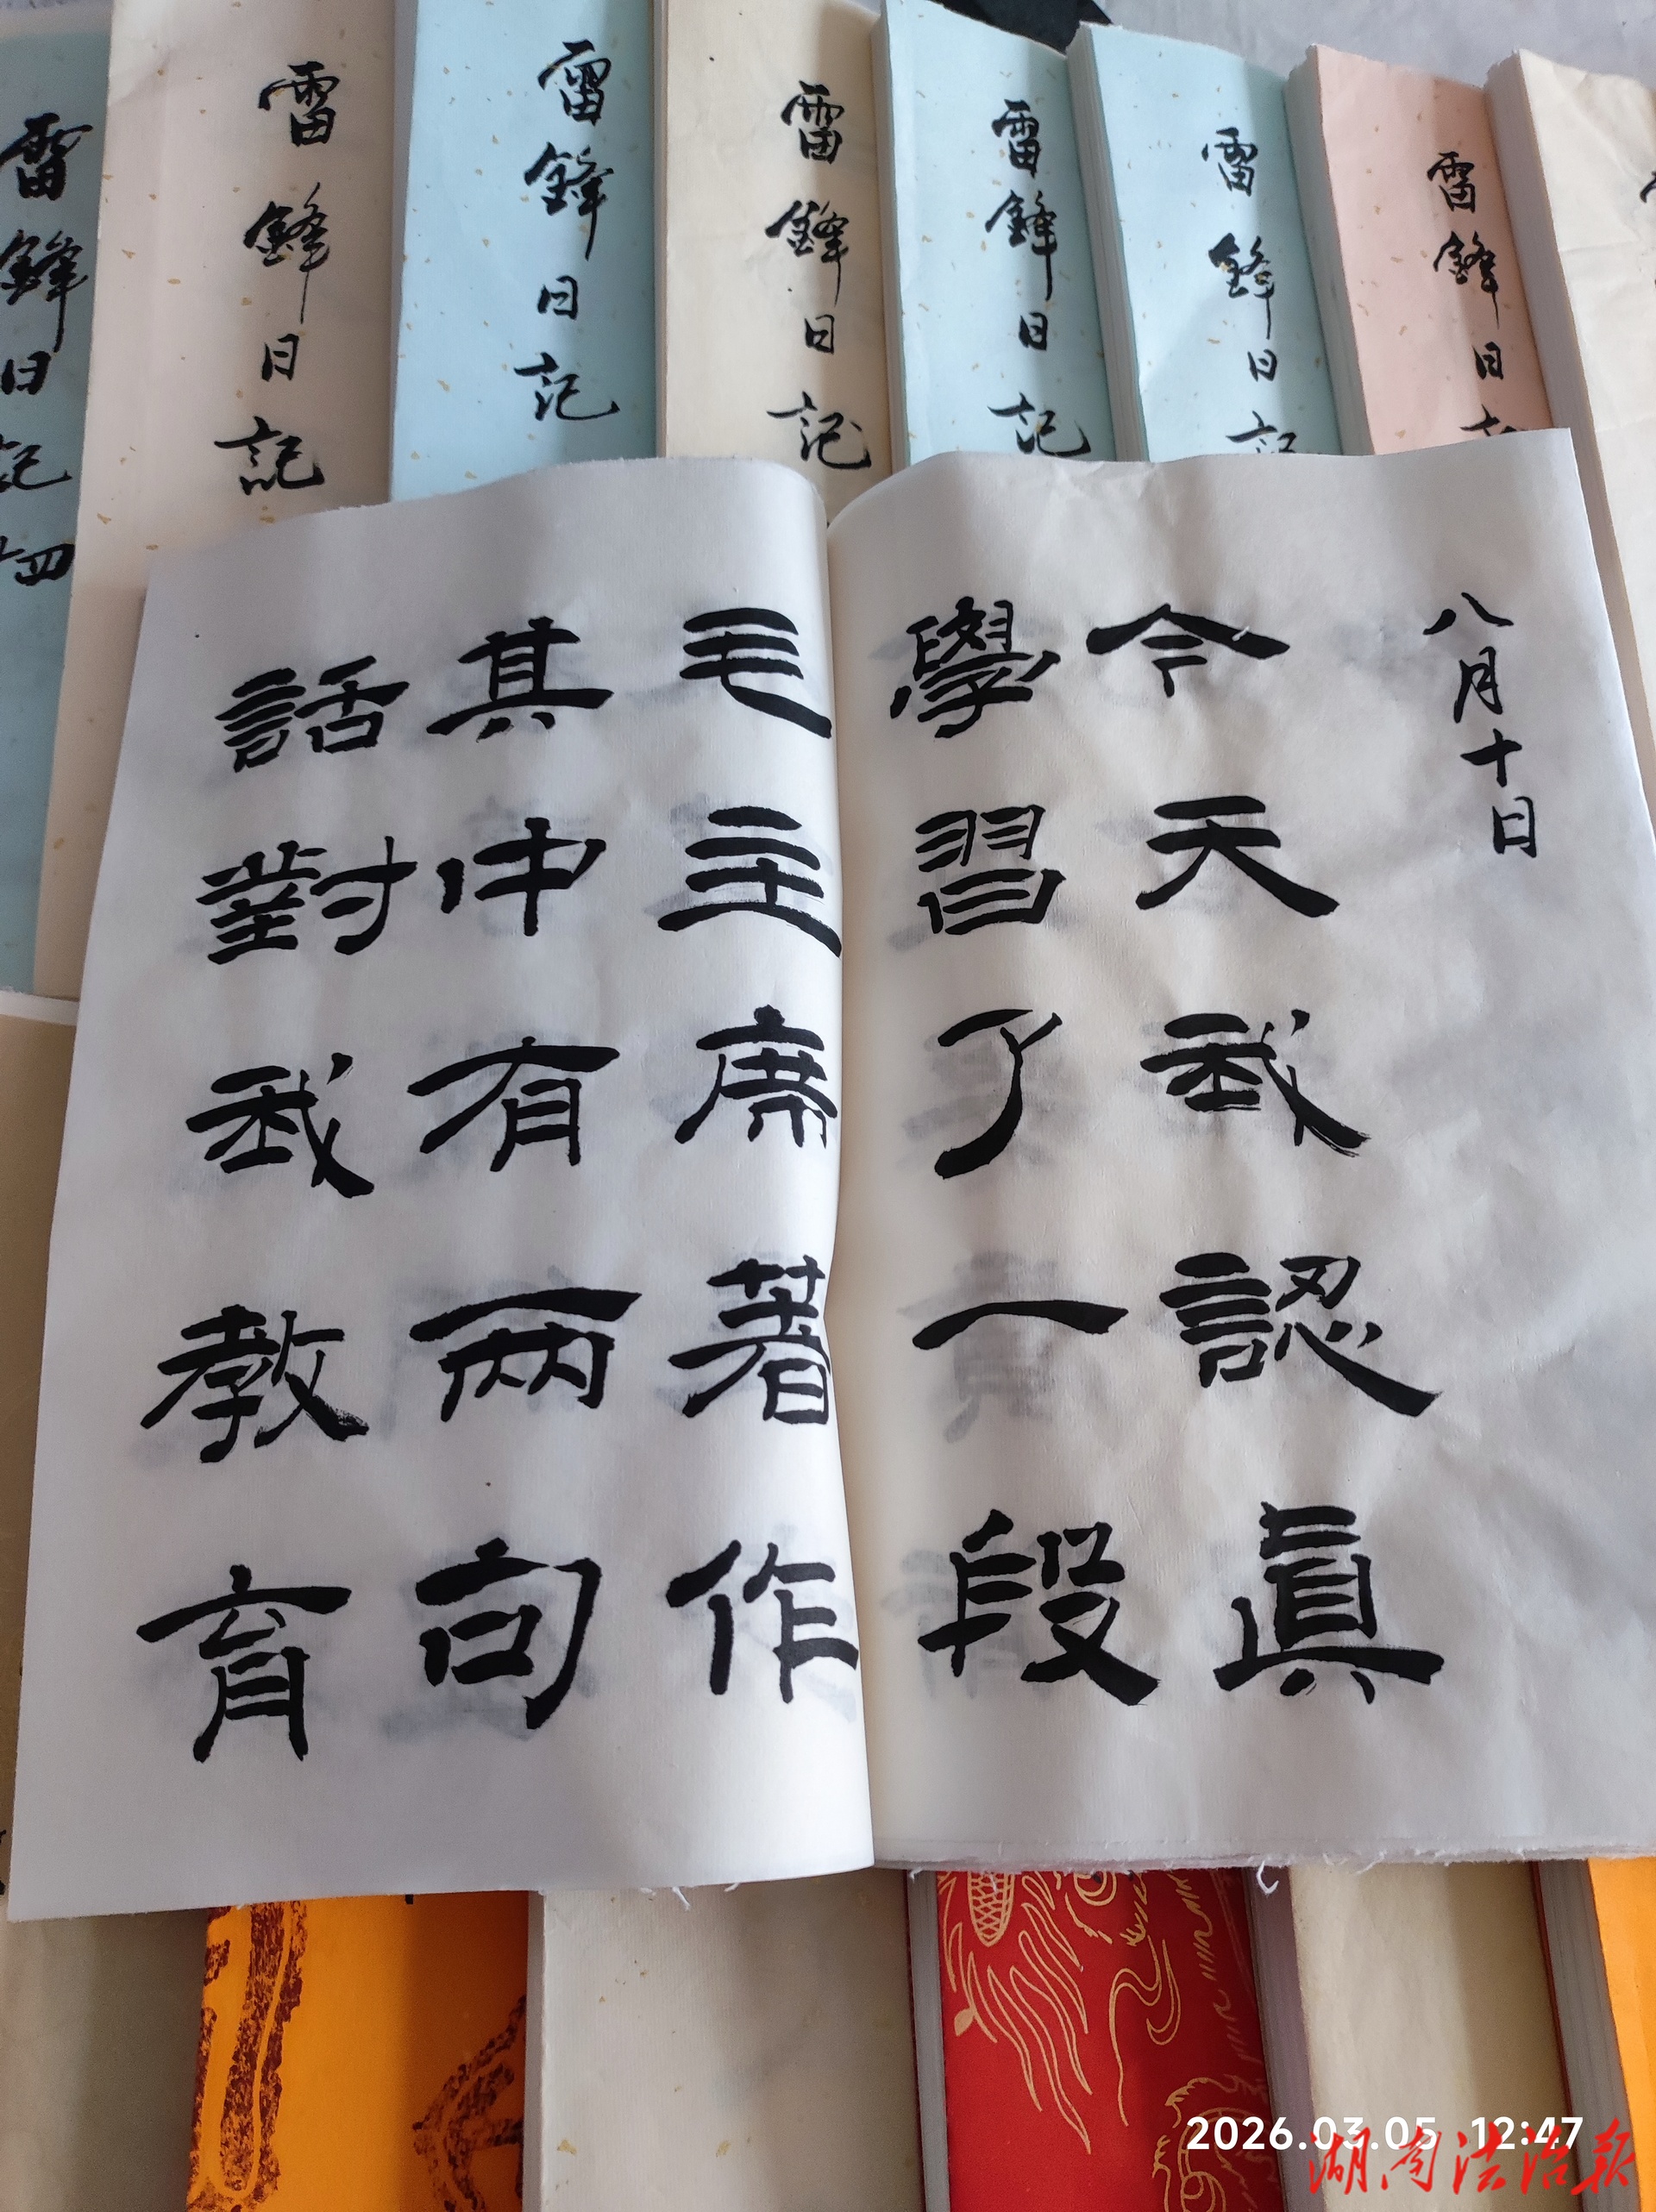 雷鋒日記
雷鋒日記
雷鋒日記
雷鋒日記
雷鋒日記
雷鋒日記
雷鋒日記四
八月十日
今天我認真
學習了一段
毛主席著作
其中有兩句
話對我教育
2026.03.05 12:47
湖南法治报